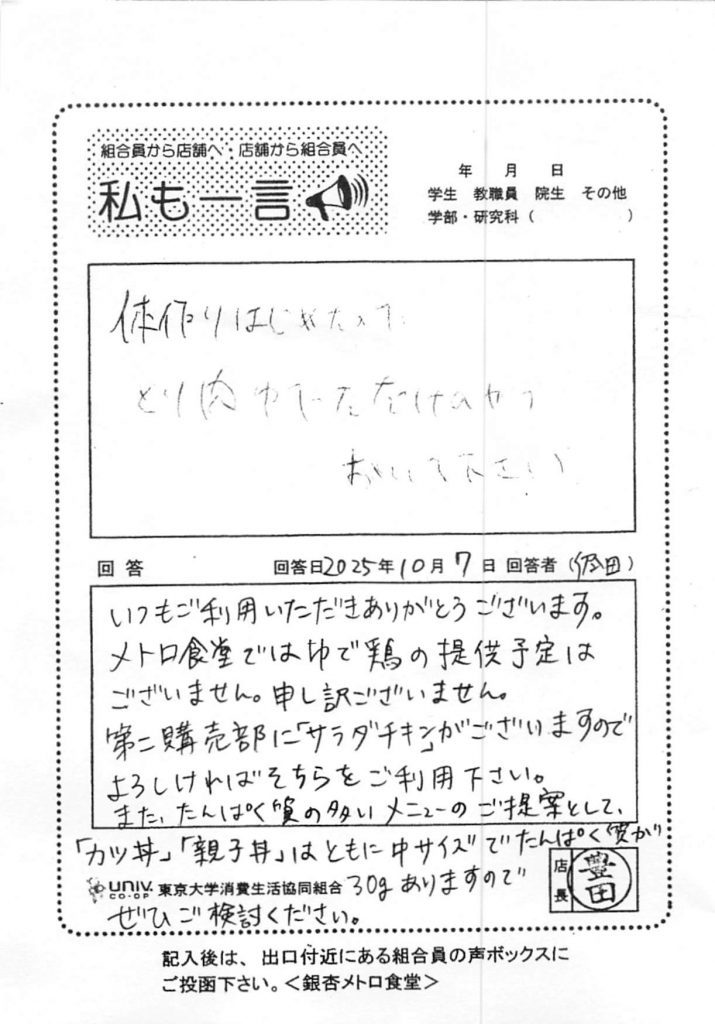 組合員から店舗へ・店舗から組合員へ
私も一言
年 月 日
学生 教職員 院生 その他
学部・研究科( )
体作りはじめたので
とり肉ゆでただけのやつ
おいて下さい
回答 回答日2025年10月7日 回答者( 田)
いつもご利用いただきありがとうございます。
メトロ食堂ではゆで鶏の提供予定は
ございません。申し訳ございません。
第二購売部に「サラダチキン」がございますので
よろしければそちらをご利用下さい。
また、たんぱく質の多いメニューのご提案として、
「カツ丼」「親子丼」はともに中サイズでたんぱく質が
30gありますので
ぜひご検討ください。
univ. CO-OP 東京大学消費生活協同組合
店長 豊田
記入後は、出口付近にある組合員の声ボックスに
ご投函下さい。<銀杏メトロ食堂>